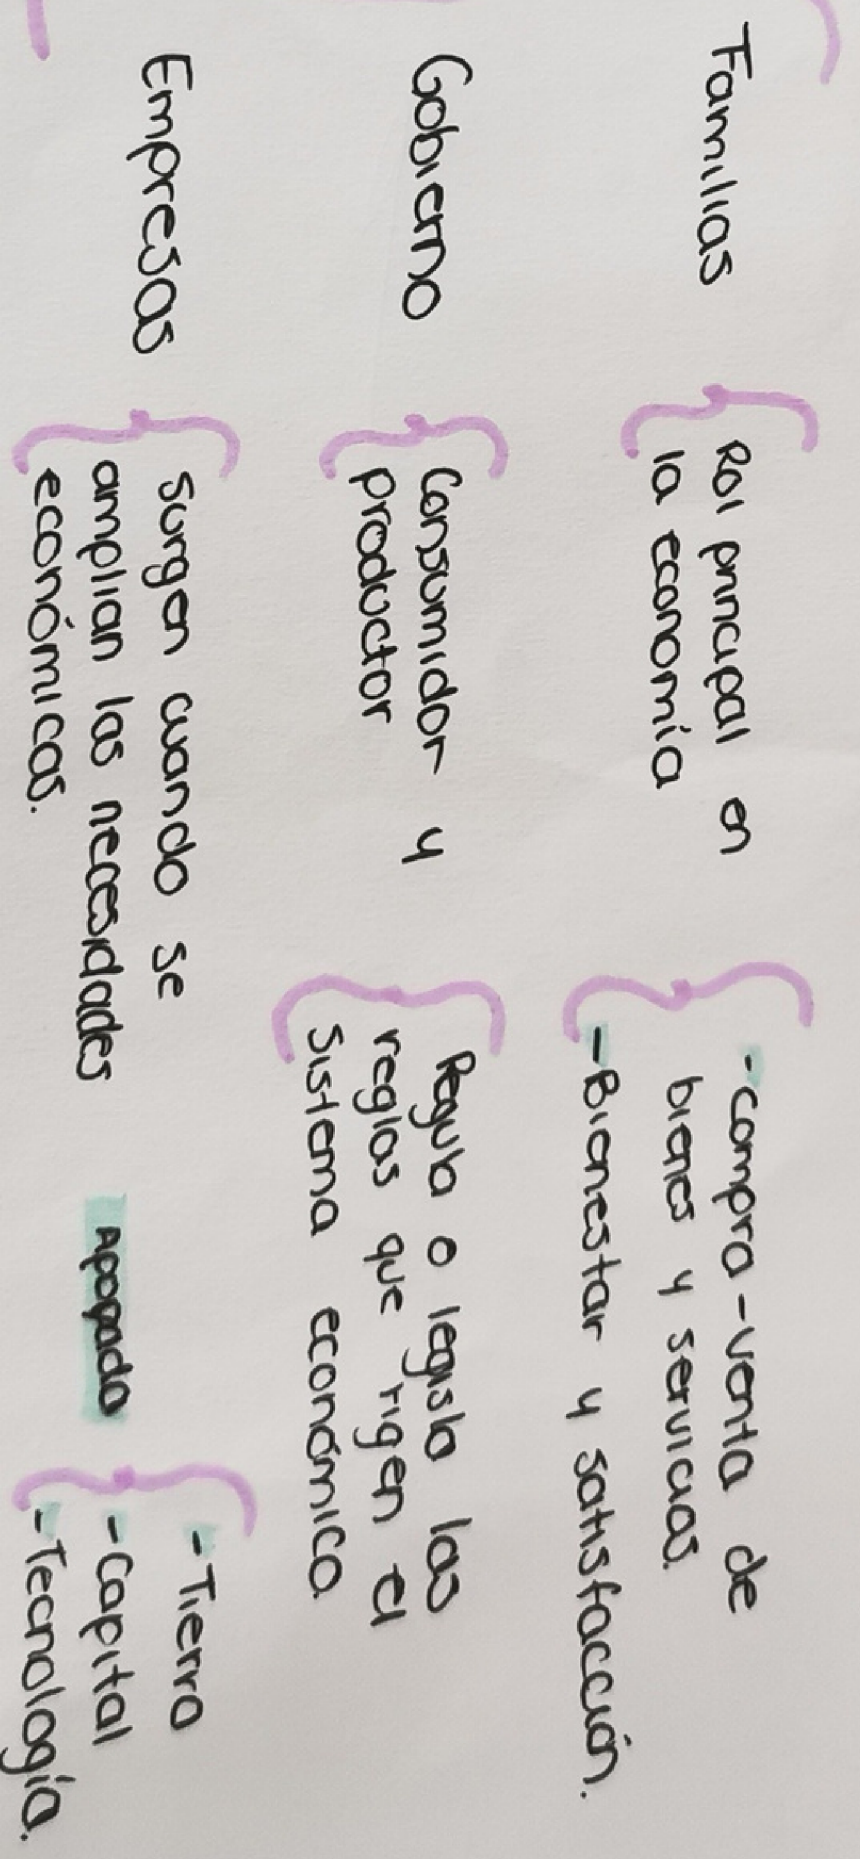 Familias
Rol principal en
la economía
-compra-venta de
bienes y servicios.
-Bienestar y satisfacción.
Gobierno
Consumidor y
productor
Regula o legisla las
reglas que rigen el
sistema económico
Empresas
surgen cuando se
amplian las necesidades
económicas.
Apogado
-Tierra
-Capital
-Tecnología.